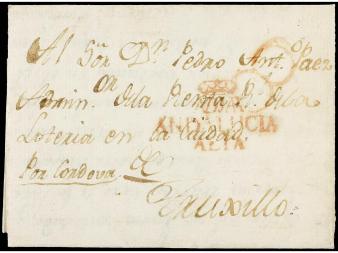 Al Sõr Dn. Pedro Antº. Paez
Admin.or de la Renta Rl. de la
Loteria en la Ciudad
ANDALUCIA
ALTA
Por Cordova de
Truxillo.